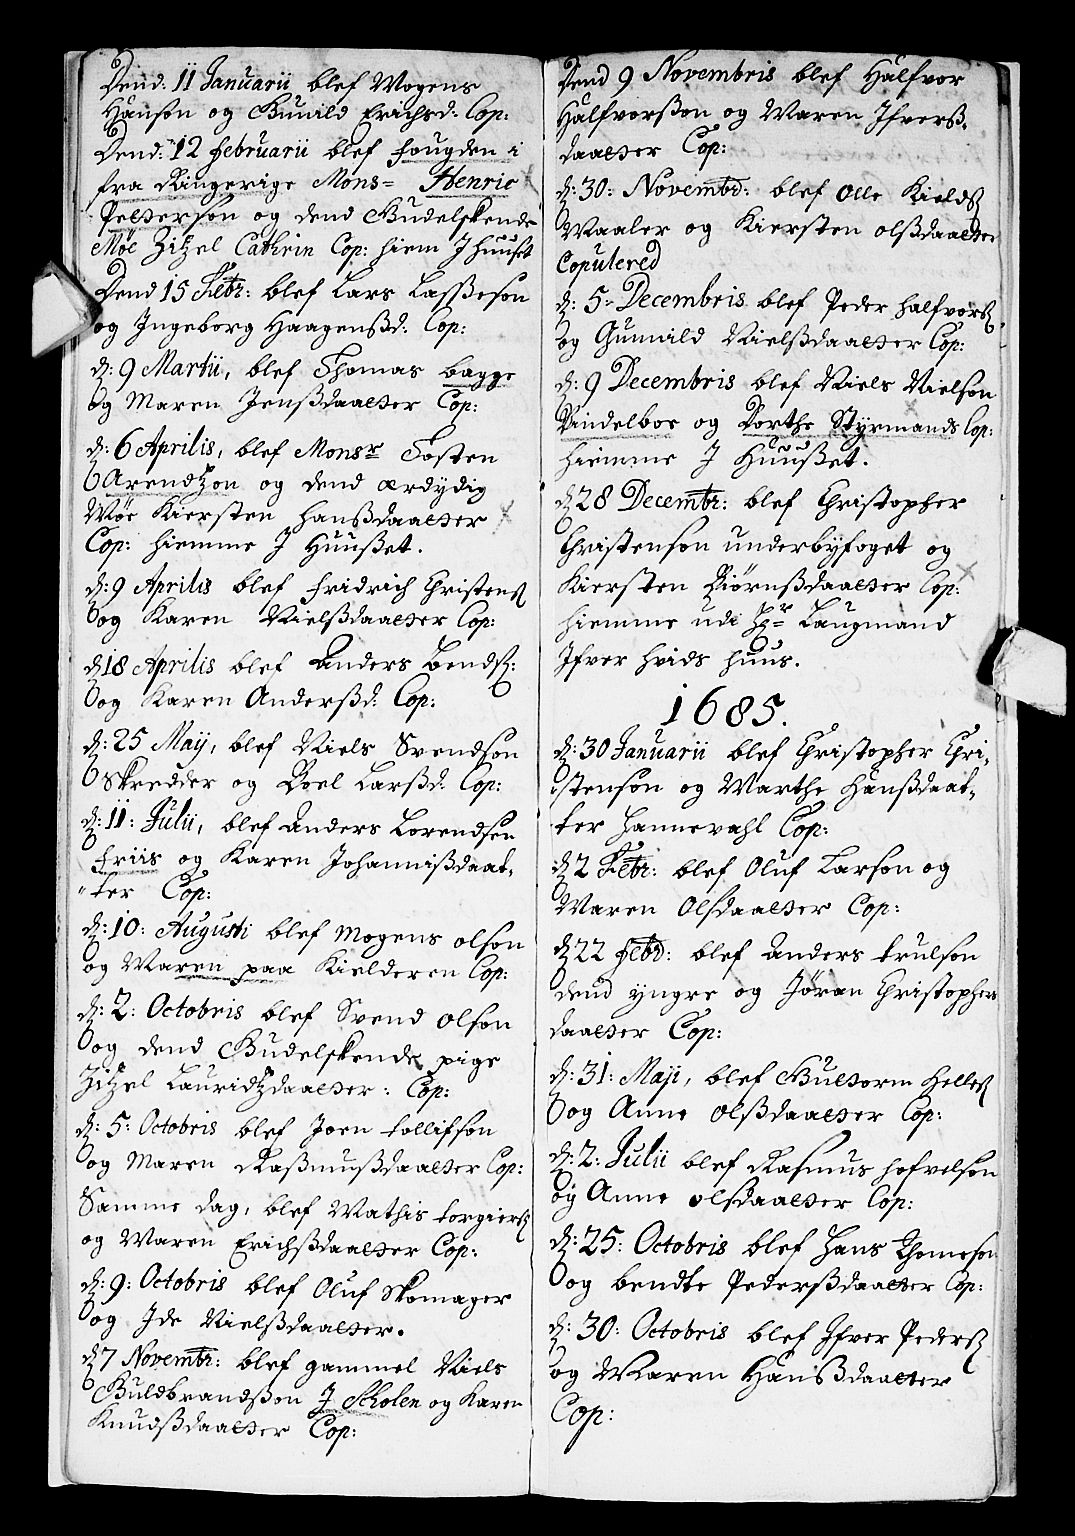 Dend: 11 Januarii blef Mogens
Hanson og Gunild Erichsd: Cop:
Dend: 12 Februarii blef fougden i
fra Ringerige Mons= Henric
Petterson og dend Gudelskende
Møe Zitzel Cathrin Cop: hiem J huuset
Dend 15 Febr: blef Lars Lasseson
og Ingeborg Haagenßd: Cop:
d: 9 Martii, blef Thomas bagge
og Maren Jenßdaatter Cop:
d: 6 Aprilis, blef Monsr Tosten
Arendtzon og dend ærdydig
Møe Kiersten Hanßdaatter
Cop: hiemme J Huußet.
d: 9 Aprilis blef Fridrich Christens
og Karen Nielßdaatter Cop:
d 18 Aprilis blef Anders Bends:
og Karen Anderßd: Cop:
d: 25 Maij, blef Niels Svendson
Skredder og Roel Larßd: Cop:
d: 11: Julii, blef Anders Lorendsen
Friis og Karen Johannißdaat-
"ter Cop:
d: 10: Augusti blef Mogens Olson
og Maren paa Kielderen Cop:
d: 2: Octobris blef Svend Olson
og dend Gudelskende pige
Zitzel Lauridtzdaatter: Cop:
d: 5: Octobris blef Joen Tollifson
og Maren Raßmußdaatter Cop:
Samme dag, blef Mathis Torgiers
og Maren Erichßdaatter Cop:
d: 9: Octobris blef Oluf Skomager
og Ide Nielßdaatter.
d 7 Novembr: blef gammel Niels
Guldbrandßon J Scholen og Karen
Knudßdaatter Cop:
Dend 9 Novembris blef Halfvor
Halfvorßon og Maren Ifverß-
daatter Cop:
d: 30: Novembr: blef Olle Kields
Maaler og Kiersten Olßdaatter
Copulered
d: 5= Decembris blef Peder Halfvors
og Gunnild Nielßdaatter Cop:
d: 9 Decembris blef Niels Nielson
Vindelboe og Dorthe Styrmands Cop:
hiemme J Huußet.
d 28 Decembr: blef Christopher
Christenson underbyfoget og
Kiersten Biørnßdaatter Cop:
hiemme udi Hr Laugmand
Ifver Hvids huus.
1685.
d: 30 Januarii blef Christopher Chri-
stenson og Marthe Hanßdaat-
ter Hannevahl Cop:
d 2 Febr: blef Oluf Larson og
Maren Olsdaatter Cop:
d 22 Febr: blef Anders Trulson
dend yngre og Jøran Christophers
daatter Cop:
d: 31: Maji, blef Guttorm Helles
og Anne Olßdaatter Cop:
d: 2: Julii blef Rasmus Hofvelson
og Anne Olsdaatter Cop:
d: 25: Octobris blef Hans Thomeson
og Bendte Pederßdaatter Cop:
d: 30: Octobris blef Ifver Peders
og Maren Hanßdaatter
Cop: